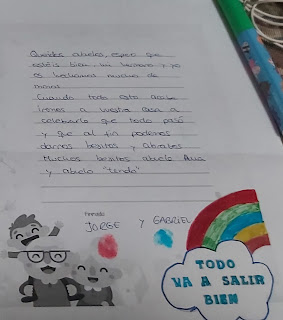 Queridos abuelos, espero que
estéis bien, mi hermano y yo
os echamos mucho de
menos
Cuando todo esto acabe
iremos a vuestra casa a
celebrarlo que todo pasó
y que al fin podemos
darnos besitos y abrazos
Muchos besitos abuela Ana
y abuelo
JORGE Y GABRIEL
TODO
VA A SALIR
BIEN